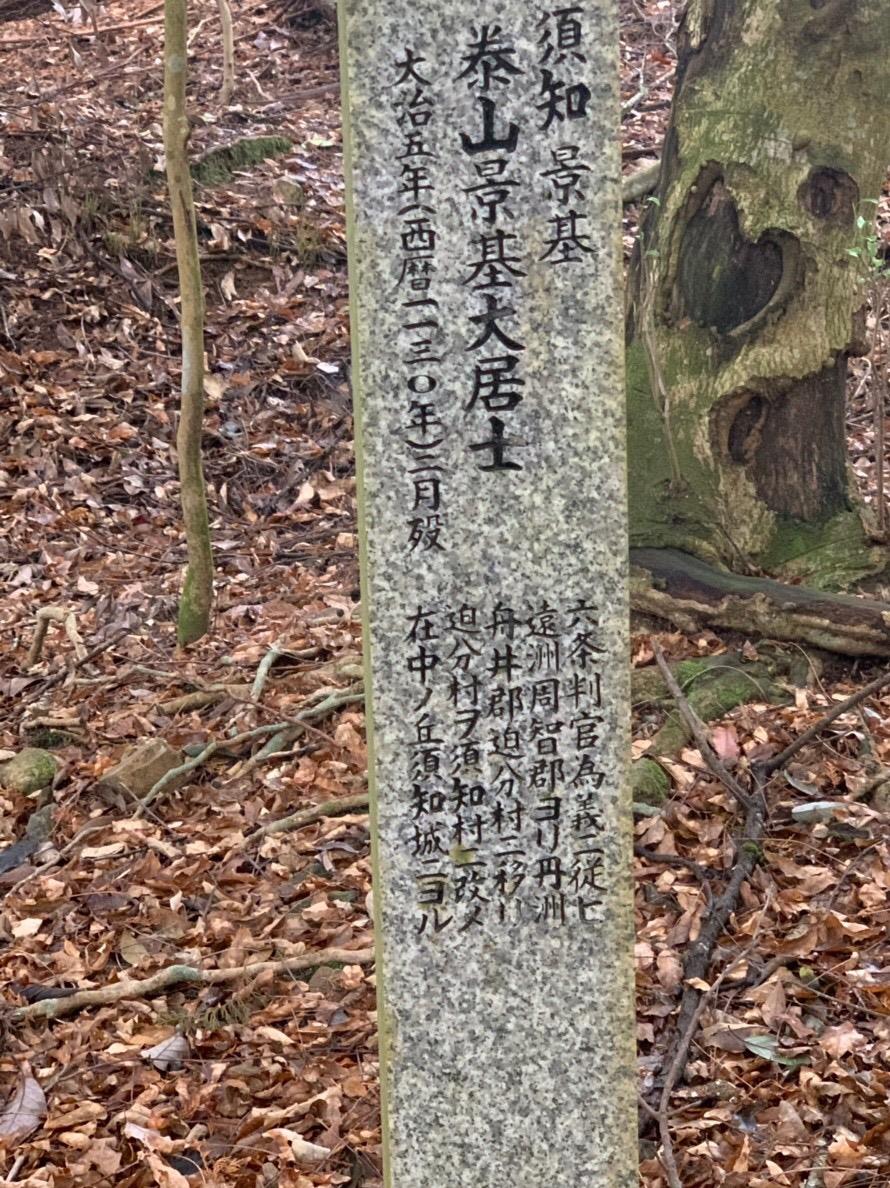 須知 景基
泰山景基大居士
大治五年(西暦一一三〇年)二月歿
六条判官為義ニ従ヒ
遠洲周智郡ヨリ丹洲
舟井郡迫分村ニ移リ
迫分村ヲ須知村ニ改メ
在中ノ丘須知城ニヨル